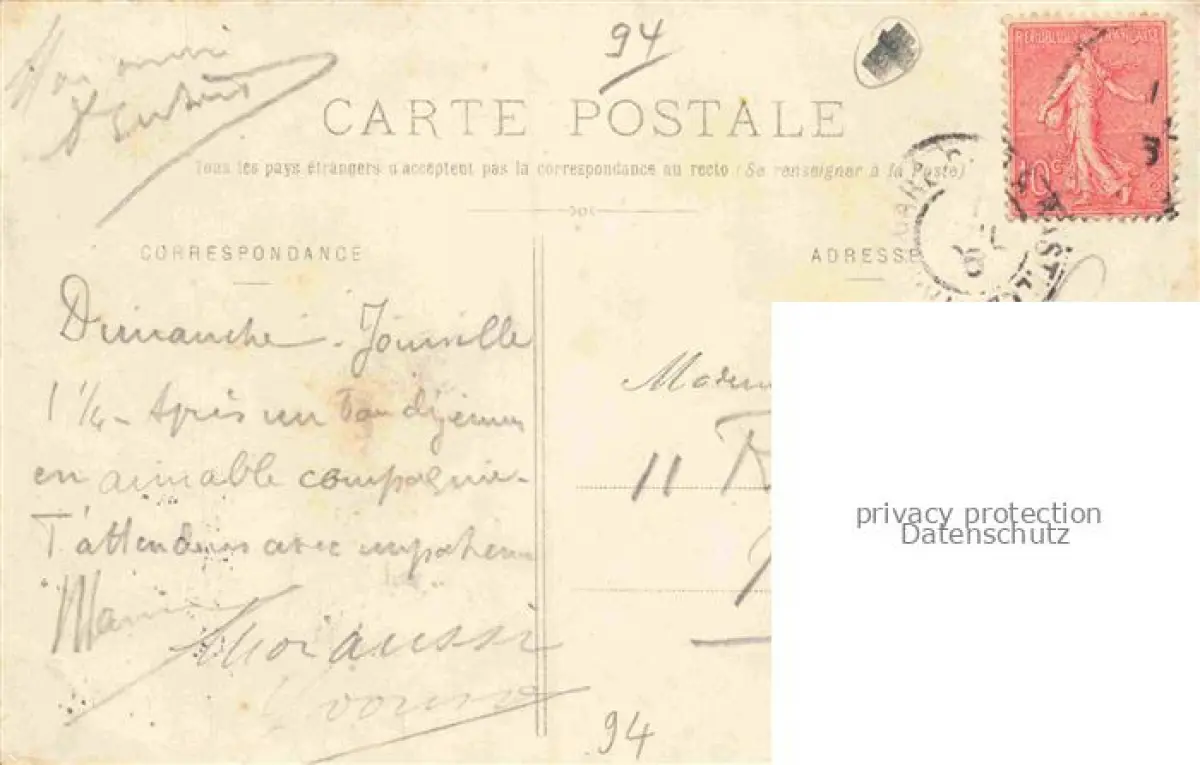 94
CARTE POSTALE
Tous les pays étrangers n'acceptent pas la correspondance au recto (Se renseigner à la Poste)
REPUBLIQUE FRANÇAISE
10c
CORRESPONDANCE
Dimanche - Joinville
1 1/4 - Après un bon déjeuner
en aimable compagnie -
T'attendons avec impatience
moi aussi
ADRESSE
GARE
EST
11
privacy protection
Datenschutz
94